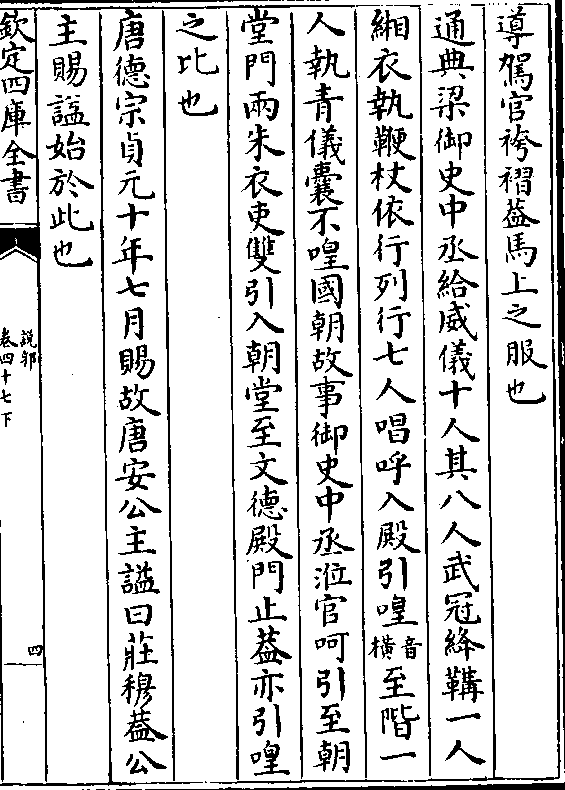 導駕官袴褶葢馬上之服也
通典梁御史中丞給威儀十人其八人武冠絳韝一人
緗衣執鞭杖依行列行七人唱呼入殿引喤音橫至階一
人執青儀囊不喤國朝故事御史中丞涖官呵引至朝
堂門兩朱衣吏雙引入朝堂至文德殿門止葢亦引喤
之比也
唐德宗貞元十年七月賜故唐安公主諡曰莊穆葢公
主賜諡始於此也
欽定四庫全書
說郛
卷四十七下
四